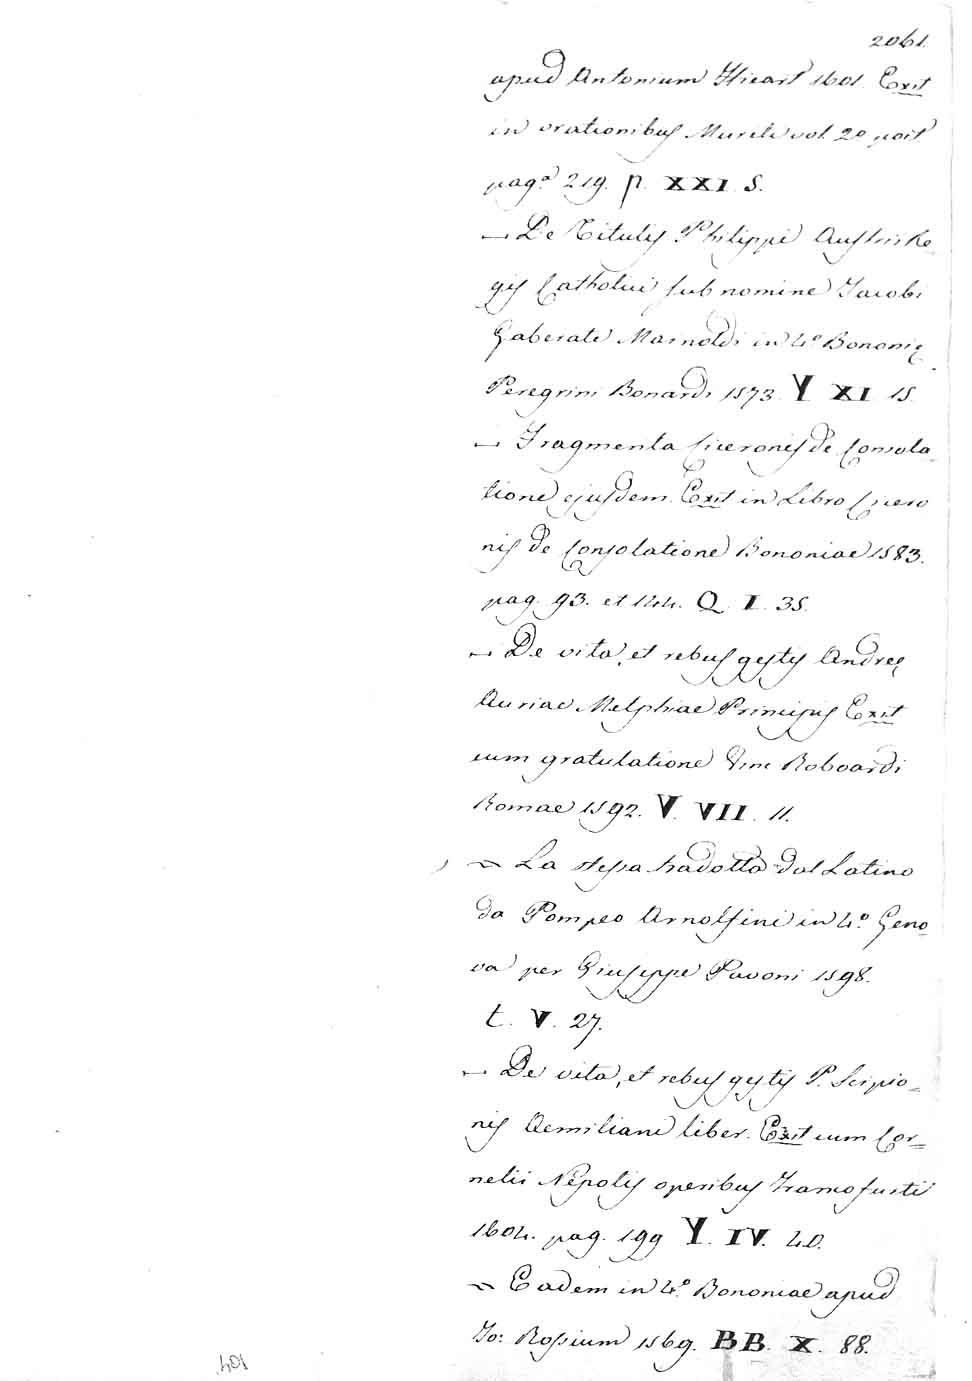 2061.
apud Antonium Hieart 1601. Exit
in orationibus Mureti vol. 2º post
pag.ª 219. p. XXI S.
— De Titulis Philippi Austrii Re
gis Catholici sub nomine Jacobi
Gaberate Mainoldi in 4º Bononię
Peregrini Bonardi 1573. Y XI 15.
— Fragmenta Ciceronis de Consola-
tione ejusdem. Exit in Libro Cicero
nis de Consolatione Bononiae 1583.
pag. 93. et 144. Q. I. 35.
— De vita, et rebus gestis Andreę
Auriae Melphiae Principis Exit
cum gratulatione Vinc Roboardi
Romae 1592. V. VII. 11.
— La stessa tradotta dal Latino
da Pompeo Arnolfini in 4º. Geno-
va per Giuseppe Pavoni 1598.
t. V. 27.
— De vita, et rebus gestis P. Scipio-
nis Aemiliani liber. Exit cum Cor-
nelii Nepotis operibus Francofurti
1604. pag. 199 Y. IV. 40.
— Eadem in 4º. Bononiae apud
Jo: Rossium 1569. BB. X. 88.
104.